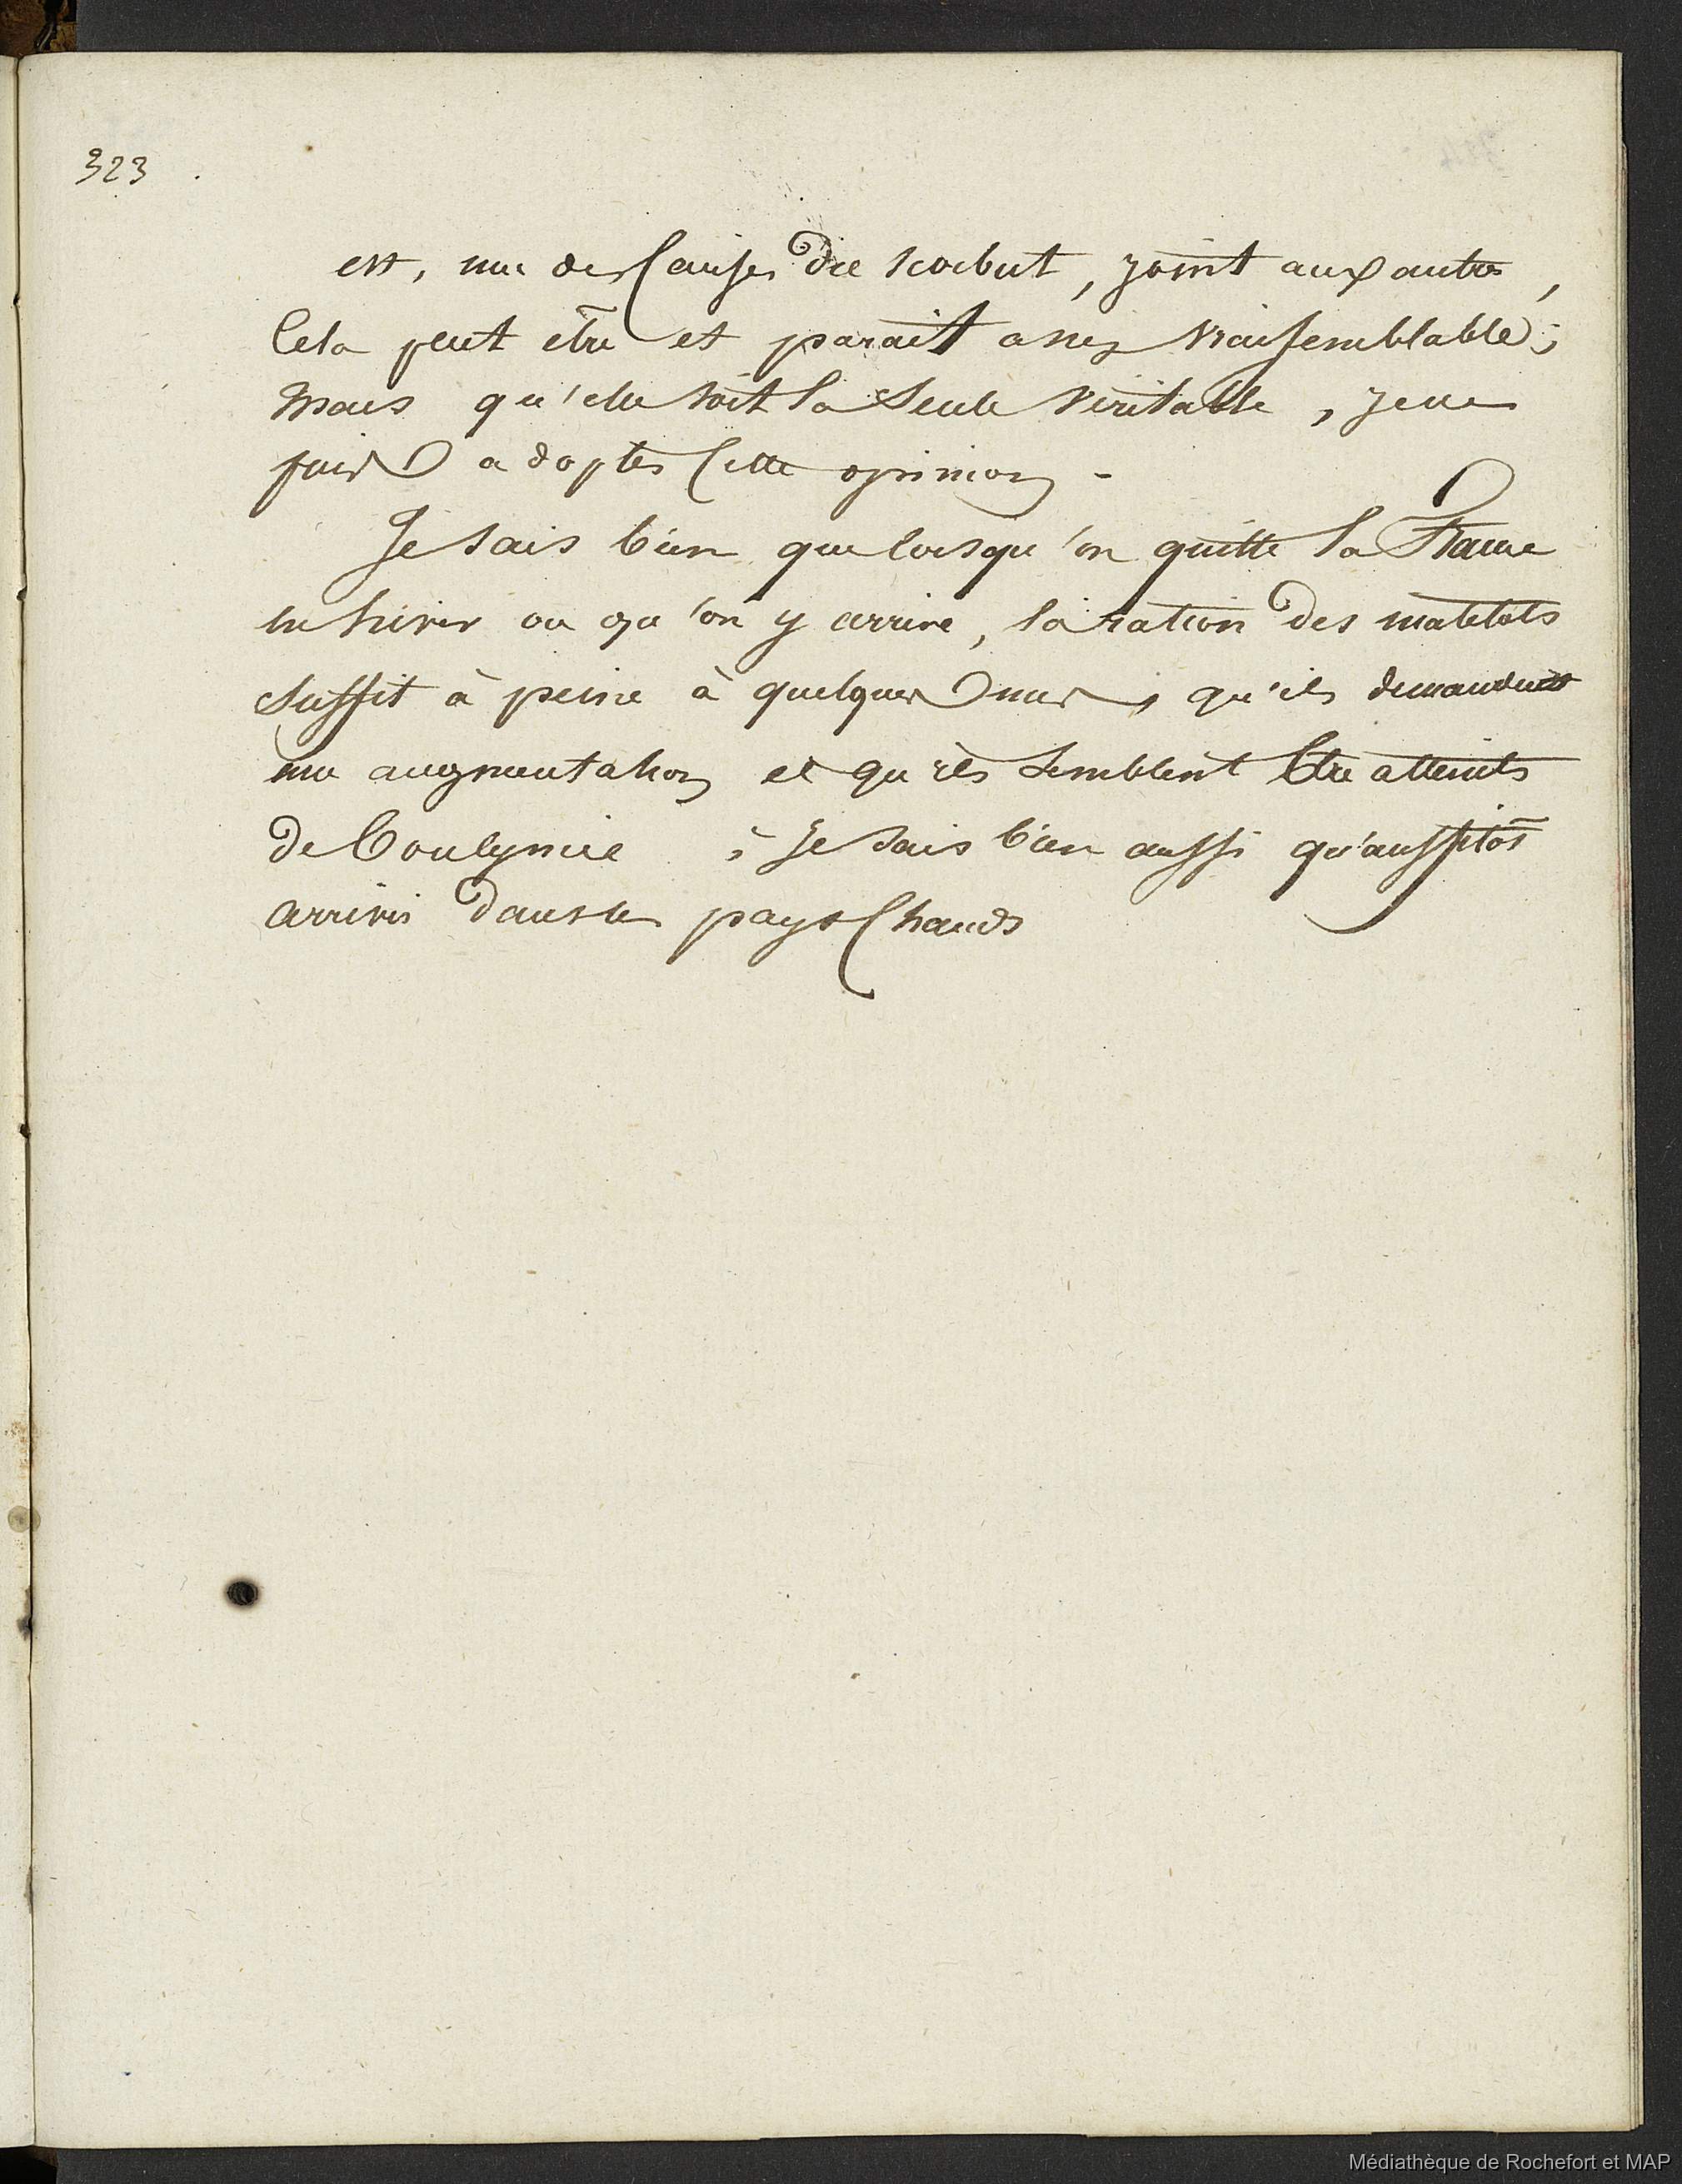 323
est, une des Causes du scorbut, joint aux autres,
Cela peut être et paraît assez vraisemblable;
mais qu'elle soit la seule véritable, je ne
puis adopter Cette opinion.
Je sais bien que lorsqu'on quitte la France
en hiver ou qu'on y arrive, la ration des matelots
suffit à peine à quelques uns, qu'ils demandent
une augmentation et qu'ils semblent Etre atteints
de Boulymie; Je sais bien aussi qu'aussitôt
arrivés dans les pays Chauds
Médiathèque de Rochefort et MAP